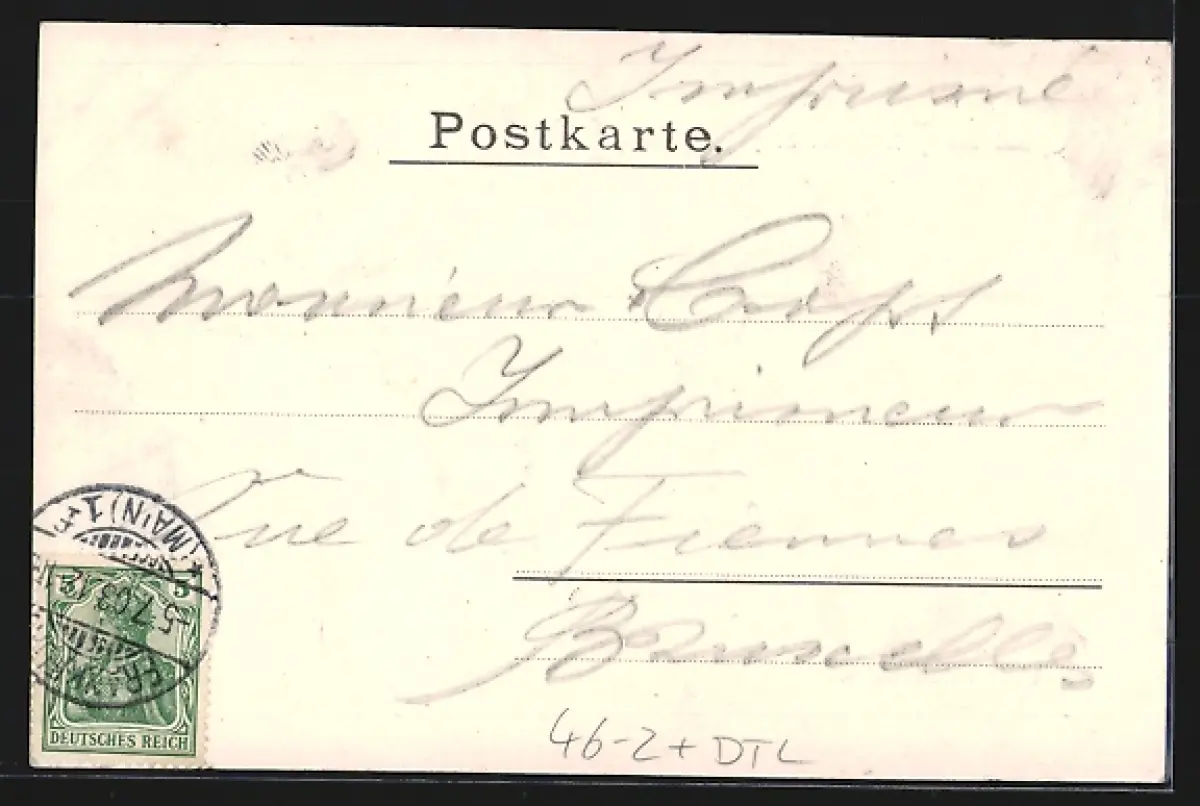 Imprimé
Postkarte.
Monsieur
Imprimeur
Rue de Fiennes
Bruxelles
(MAIN) 1
5.7.03
FRANKFURT
5 5
DEUTSCHES REICH
46-2+DTL